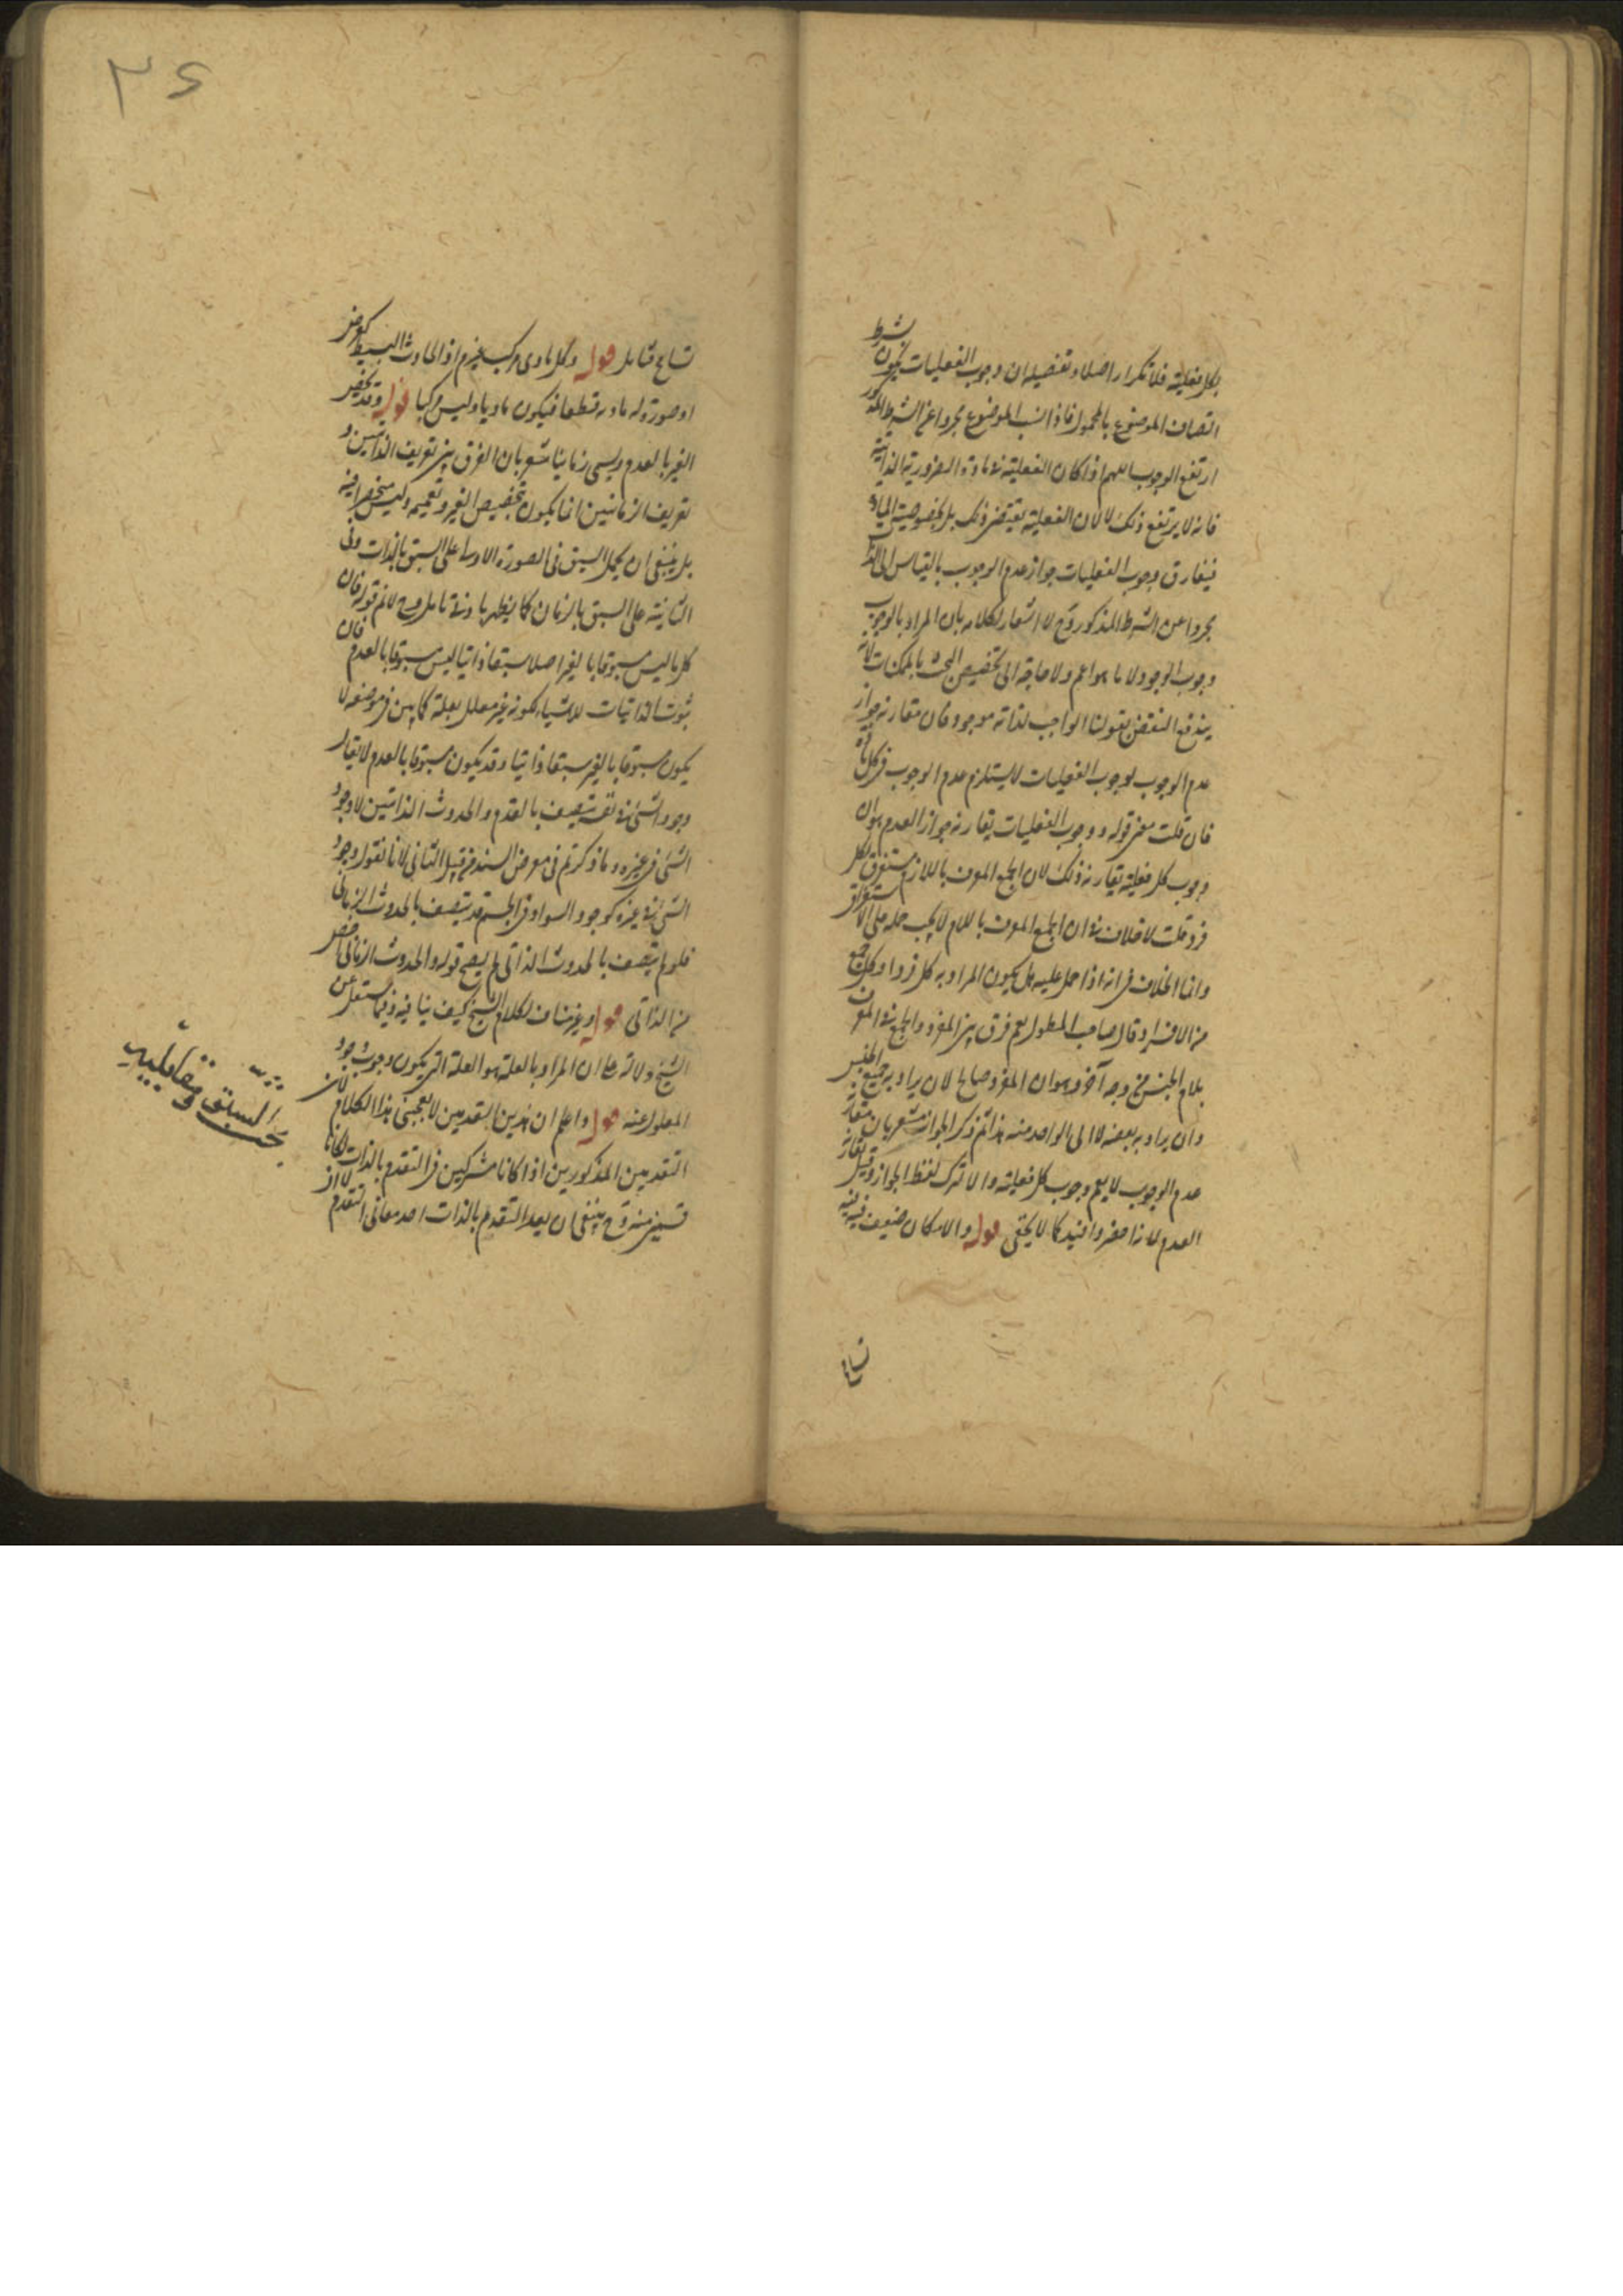 بكل فعلية فلا تكرار اصلا وتفصيله ان وجوب الفعليات يكون بشرط
اتصاف الموضوع بالمحمول فاذا نسب الموضوع مجردا عن الشرط المذكور
ارتفع الوجوب اللهم اذا كان الفعلية في مادة الضرورية الذاتية
فانه لا يرتفع ذلك لا لان الفعلية يقتضى ذلك بل لخصوصية المادة
فيفارق وجوب الفعليات جواز عدم الوجوب بالقياس الى الذات
مجردا عن الشرط المذكور وح لا اشعار لكلامه بان المراد بالوجوب
وجوب الوجود لا ما هو اعم ولا حاجة الى تخصيص البحث بالممكنات لانه
يندفع النقض بقولنا الواجب لذاته موجود فان مقارنة جواز
عدم الوجوب لوجوب الفعليات لا يستلزم عدم الوجوب في كل مادة
فان قلت معنى قوله ووجوب الفعليات يقارنه جواز العدم هو ان
وجوب كل فعلية يقارنه ذلك لان الجمع المعرف باللام يستغرق لكل
فرد قلت لا خلاف في ان الجمع المعرف باللام لا يجب حمله على الاستغراق
وانما الخلاف فى انه اذا حمل عليه هل يكون المراد به كل فرد او كل جمع
من الافراد وقال صاحب المطول نعم فرق بين المفرد والجمع في المعرف
بلام الجنس من وجه آخر وهو ان المفرد صالح لان يراد به جميع الجنس
وان يراد به بعضه لا الى الواحد منه هذا ثم ذكر الجواز مشعر بان مقارنة
عدم الوجوب لا يعم وجوب كل فعلية والا لترك لفظ الجواز وقيل يقارنه
العدم لانه اخصر وافيد كما لا يخفى قوله والامكان ضعيف فيه
تسامح
تسامح فتامل قوله وكل مادى مركب غير م اذ الحادث البسيط كعرض
او صورة له مادة قطعا فيكون ماديا وليس مركبا قوله وقد يخص
الغير بالعدم ويسمى زمانيا مشعر بان الفرق بين تعريف الذاتيين و
تعريف الزمانيين انما يكون بتخصيص الغير وتعميمه وليس منحصرا فيه
بل ينبغى ان يحمل السبق فى الصورة الاولى على السبق بالذات وفى
الثانية على السبق بالزمان كما يظهر بادنى تامل وح لا نم قوله فان
كل ما ليس مسبوقا بالغير اصلا سبقا ذاتيا ليس مسبوقا بالعدم فان
ثبوت الذاتيات للاشياء لكونه غير معلل بعلة كما بين فى موضعه لا
يكون مسبوقا بالغير سبقا ذاتيا وقد يكون مسبوقا بالعدم لا يقال
وجود الشئ في نفسه يتصف بالقدم والحدوث الذاتيين لا وجود
الشئ فى غيره وما ذكرتم فى معرض السند من قبيل الثانى لانا نقول وجود
الشئ في غيره كوجود السواد فى الجسم قد يتصف بالحدوث الزمانى
فلو لم يتصف بالحدوث الذاتى لم يصح قوله والحدوث الزمانى اخص
من الذاتى قوله وغير مناف لكلام الشيخ كيف ينافيه وفيما ستنقل عن
الشيخ دلالة على ان المراد بالعلة هو العلة التى يكون وجوب وجود
المعلول عنه قوله واعلم ان هذين التقدمين لا يعجبنى هذا الكلام لان
التقدمين المذكورين اذا كانا مشتركين فى التقدم بالذات لكانا
قسمين منه وح ينبغى ان يعد التقدم بالذات احد معانى التقدم لا
بحث السبق ومقابليه